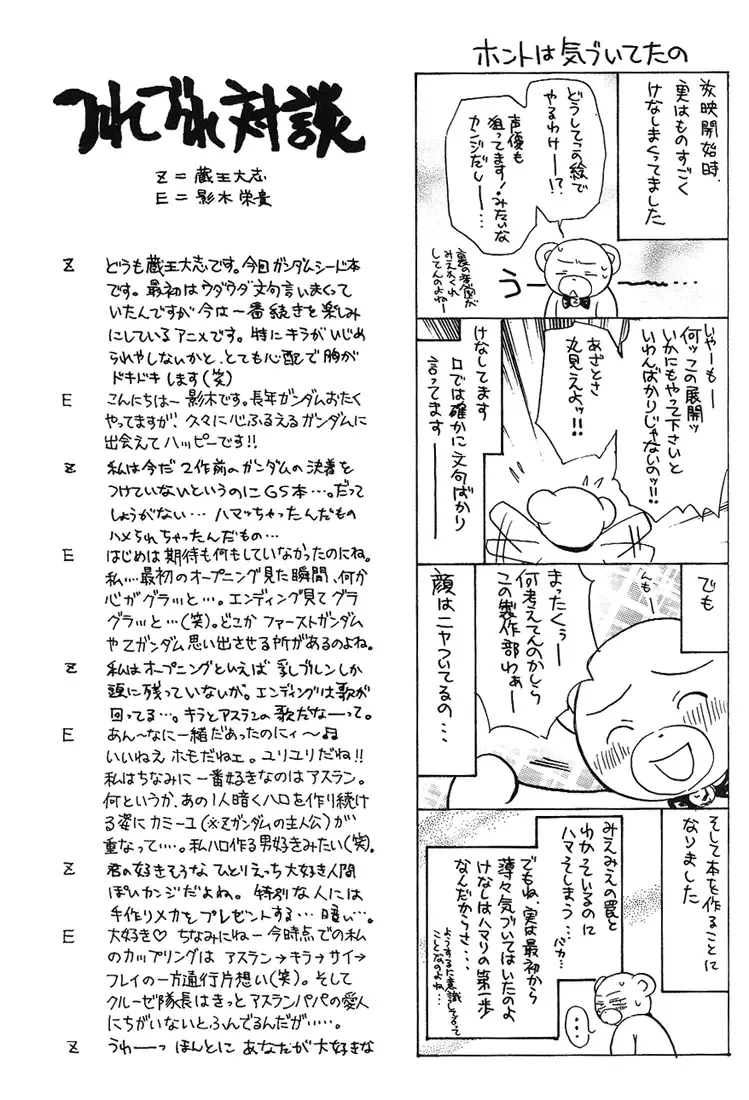 ホントは気づいてたの
放映開始時、
実はものすごく
けなしまくってました
どうしてこの絵で
やるわけー!?
声優も
狙ってます!みたいな
カンジだしー…
裏の意図が
みえかくれ
してんのよねー
うー……
いやーもー
何ッこの展開ッ
いかにもやって下さいと
いわんばかりじゃないのッ!!
あざとさ
丸見えよッ!!
けなしてます
口では確かに文句ばかり
言ってます――
でも
んもー
まったくぅー
何考えてんのかしら
この製作部わぁー
顔はニヤついてるの…
そして本を作ることに
なりました
みえみえの罠と
わかっているのに
ハマってしまう…
バカ…
でもね、実は最初から
薄々気づいてはいたのよ
けなしはハマリの第一歩
なんだからさ…
ようするに意識してるって
ことなのよね…
…
つれづれ対談
Z=蔵王大志
E=影木栄貴
Z どうも蔵王大志です。今回ガンダムシード本
です。最初はウダウダ文句言いまくって
いたんですが今は一番続きを楽しみ
にしているアニメです。特にキラがいじめ
られやしないかと、とても心配で胸が
ドキドキします(笑)
E こんにちはー影木です。長年ガンダムおたく
やってますが、久々に心ふるえるガンダムに
出会えてハッピーです!!
Z 私は今だ2作前のガンダムの決着を
つけていないというのにGS本…。だって
しょうがない…ハマッちゃったんだもの
ハメられちゃったんだもの…
E はじめは期待も何もしていなかったのにね。
私…最初のオープニング見た瞬間、何か
心がグラッと…。エンディング見てグラ
グラッと…(笑)。どこかファーストガンダム
やZガンダム思い出させる所があるのよね。
Z 私はオープニングといえば乳ブルンしか
頭に残っていないが。エンディングは歌が
回ってる…。キラとアスランの歌だなーって。
E あん〜なに一緒だあったのにィ〜♫
いいねえホモだねェ。ユリユリだね!!
私はちなみに一番好きなのはアスラン。
何というか、あの1人暗くハロを作り続け
る姿にカミーユ(※Zガンダムの主人公)が
重なって…。私ハロ作る男好きみたい(笑)。
Z 君の好きそうなひとりえっち大好き人間
ぽいカンジだよね。特別な人には
手作りメカをプレゼントする…暗い…。
E 大好き♡ ちなみにねー今時点での私
のカップリングはアスラン→キラ→サイ→
フレイの一方通行片想い(笑)。そして
クルーゼ隊長はきっとアスランパパの愛人
にちがいないとふんでるんだが……。
Z うわーっほんとにあなたが大好きな